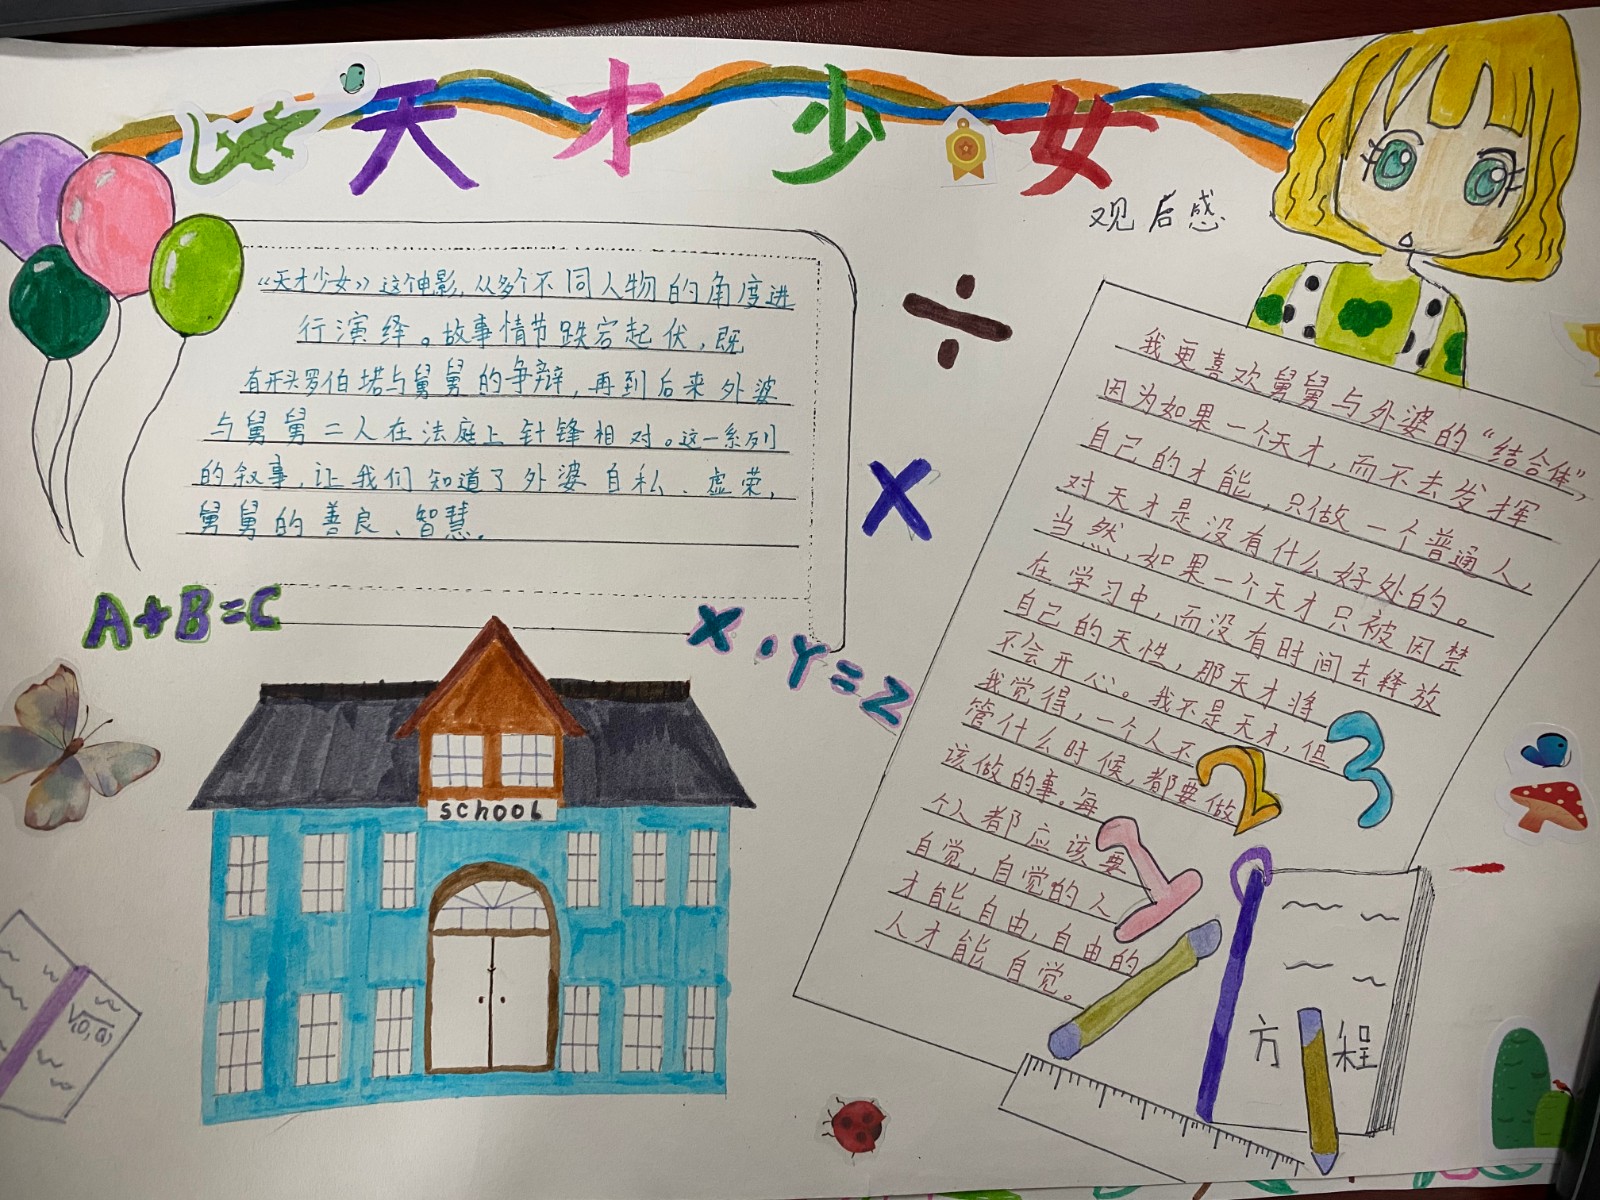 天才少女
观后感
《天才少女》这个电影,从多个不同人物的角度进
行演绎。故事情节跌宕起伏,既
有开头罗伯塔与舅舅的争辩,再到后来外婆
与舅舅二人在法庭上针锋相对。这一系列
的叙事,让我们知道了外婆自私、虚荣,
舅舅的善良、智慧。
÷
×
A+B=C
X·Y=Z
school
我更喜欢舅舅与外婆的“结合体”,
因为如果一个天才,而不去发挥
自己的才能,只做一个普通人,
对天才是没有什么好处的。
当然,如果一个天才只被囚禁
在学习中,而没有时间去释放
自己的天性,那天才将
不会开心。我不是天才,但
我觉得,一个人不
管什么时候,都要做
该做的事。每
个人都应该要
自觉,自觉的人
才能自由,自由的
人才能自觉。
1 2 3
方程